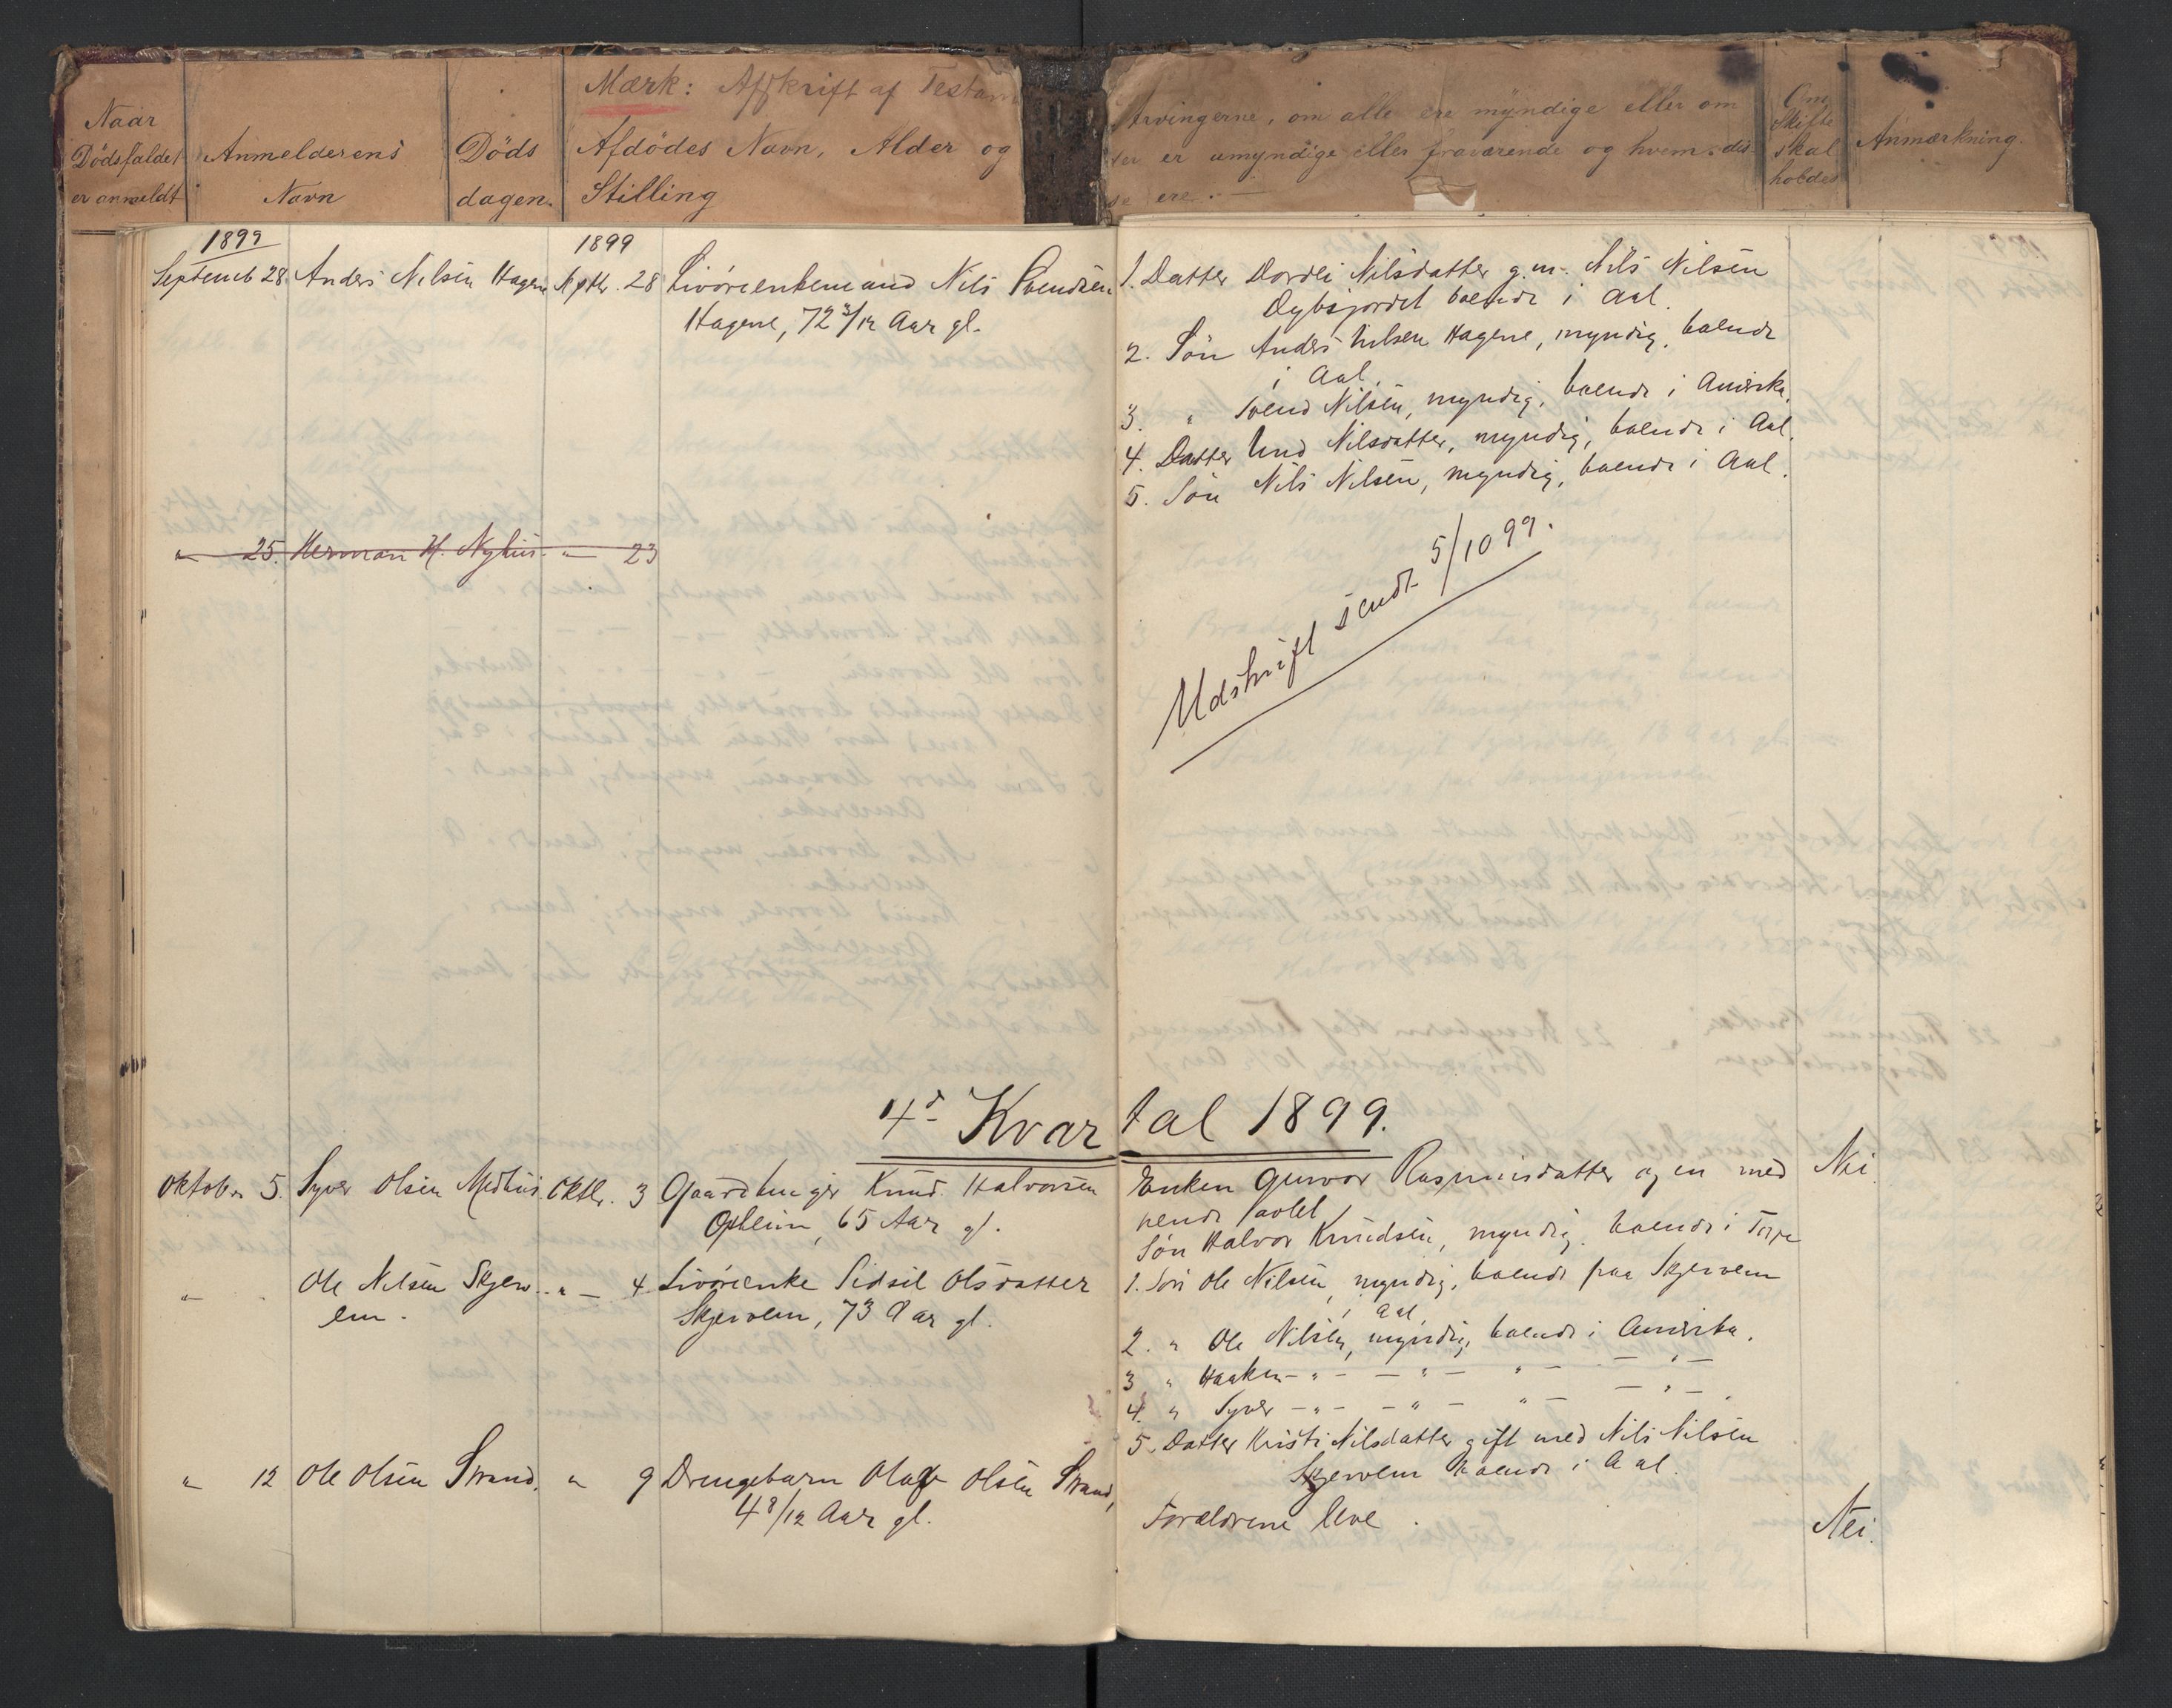 Mærk: Afskrift af Testam
Naar
Dödsfaldet
er anmeldt
Anmelderens
Navn
Döds
dagen.
Afdödes Navn, Alder og
Stilling
Arvingerne, om alle ere myndige eller om
er umyndige eller fraværende og hvem dis
se ere.
Om
Skifte
skal
holdes
Anmærkning.
1899
1899
Septemb 28. Anders Nilsen Hagene Septbr. 28 Livörenkemand Nils Svendsen
Hagene, 72 3/12 Aar gl.
1. Datter Dordei Nilsdatter g.m. Nils Nilsen
Dybsjordet boende i Aal.
2. Sön Anders Nilsen Hagene, myndig, boende
i Aal.
3. " Svend Nilsen, myndig, boende i Amerika.
4. Datter Und Nilsdatter, myndig, boende i Aal.
5. Sön Nils Nilsen, myndig, boende i Aal.
" 25. Herman H. Nyhus. " 23
Udskrift sendt 5/10 99.
4de Kvartal 1899.
Oktober 5. Syver Olsen Medhus. Oktbr. 3 Gaardbruger Knud Halvorsen
Opheim, 65 Aar gl.
Enken Gunvor Rasmusdatter og en med
hende avlet
Sön Halvor Knudsen, myndig, boende i Torpe
Nei
" Ole Nilsen Skjerv- " — 4 Livörenke Sidsel Olsdatter
em. Skjervem, 73 Aar gl.
1. Sön Ole Nilsen, myndig, boende paa Skjervem
i Aal,
2. " Ole Nilsen, myndig, boende i Amerika.
3 " Haaken — " — — " — " — — " —
4. " Syver — " — — " — " — — " — .
5. Datter Kristi Nilsdatter gift med Nils Nilsen
Skjervem boende i Aal.
" 12 Ole Olsen Strand. " 9 Drengebarn Olaf Olsen Strand,
4 8/12 Aar gl.
Forældrene leve.
Nei.